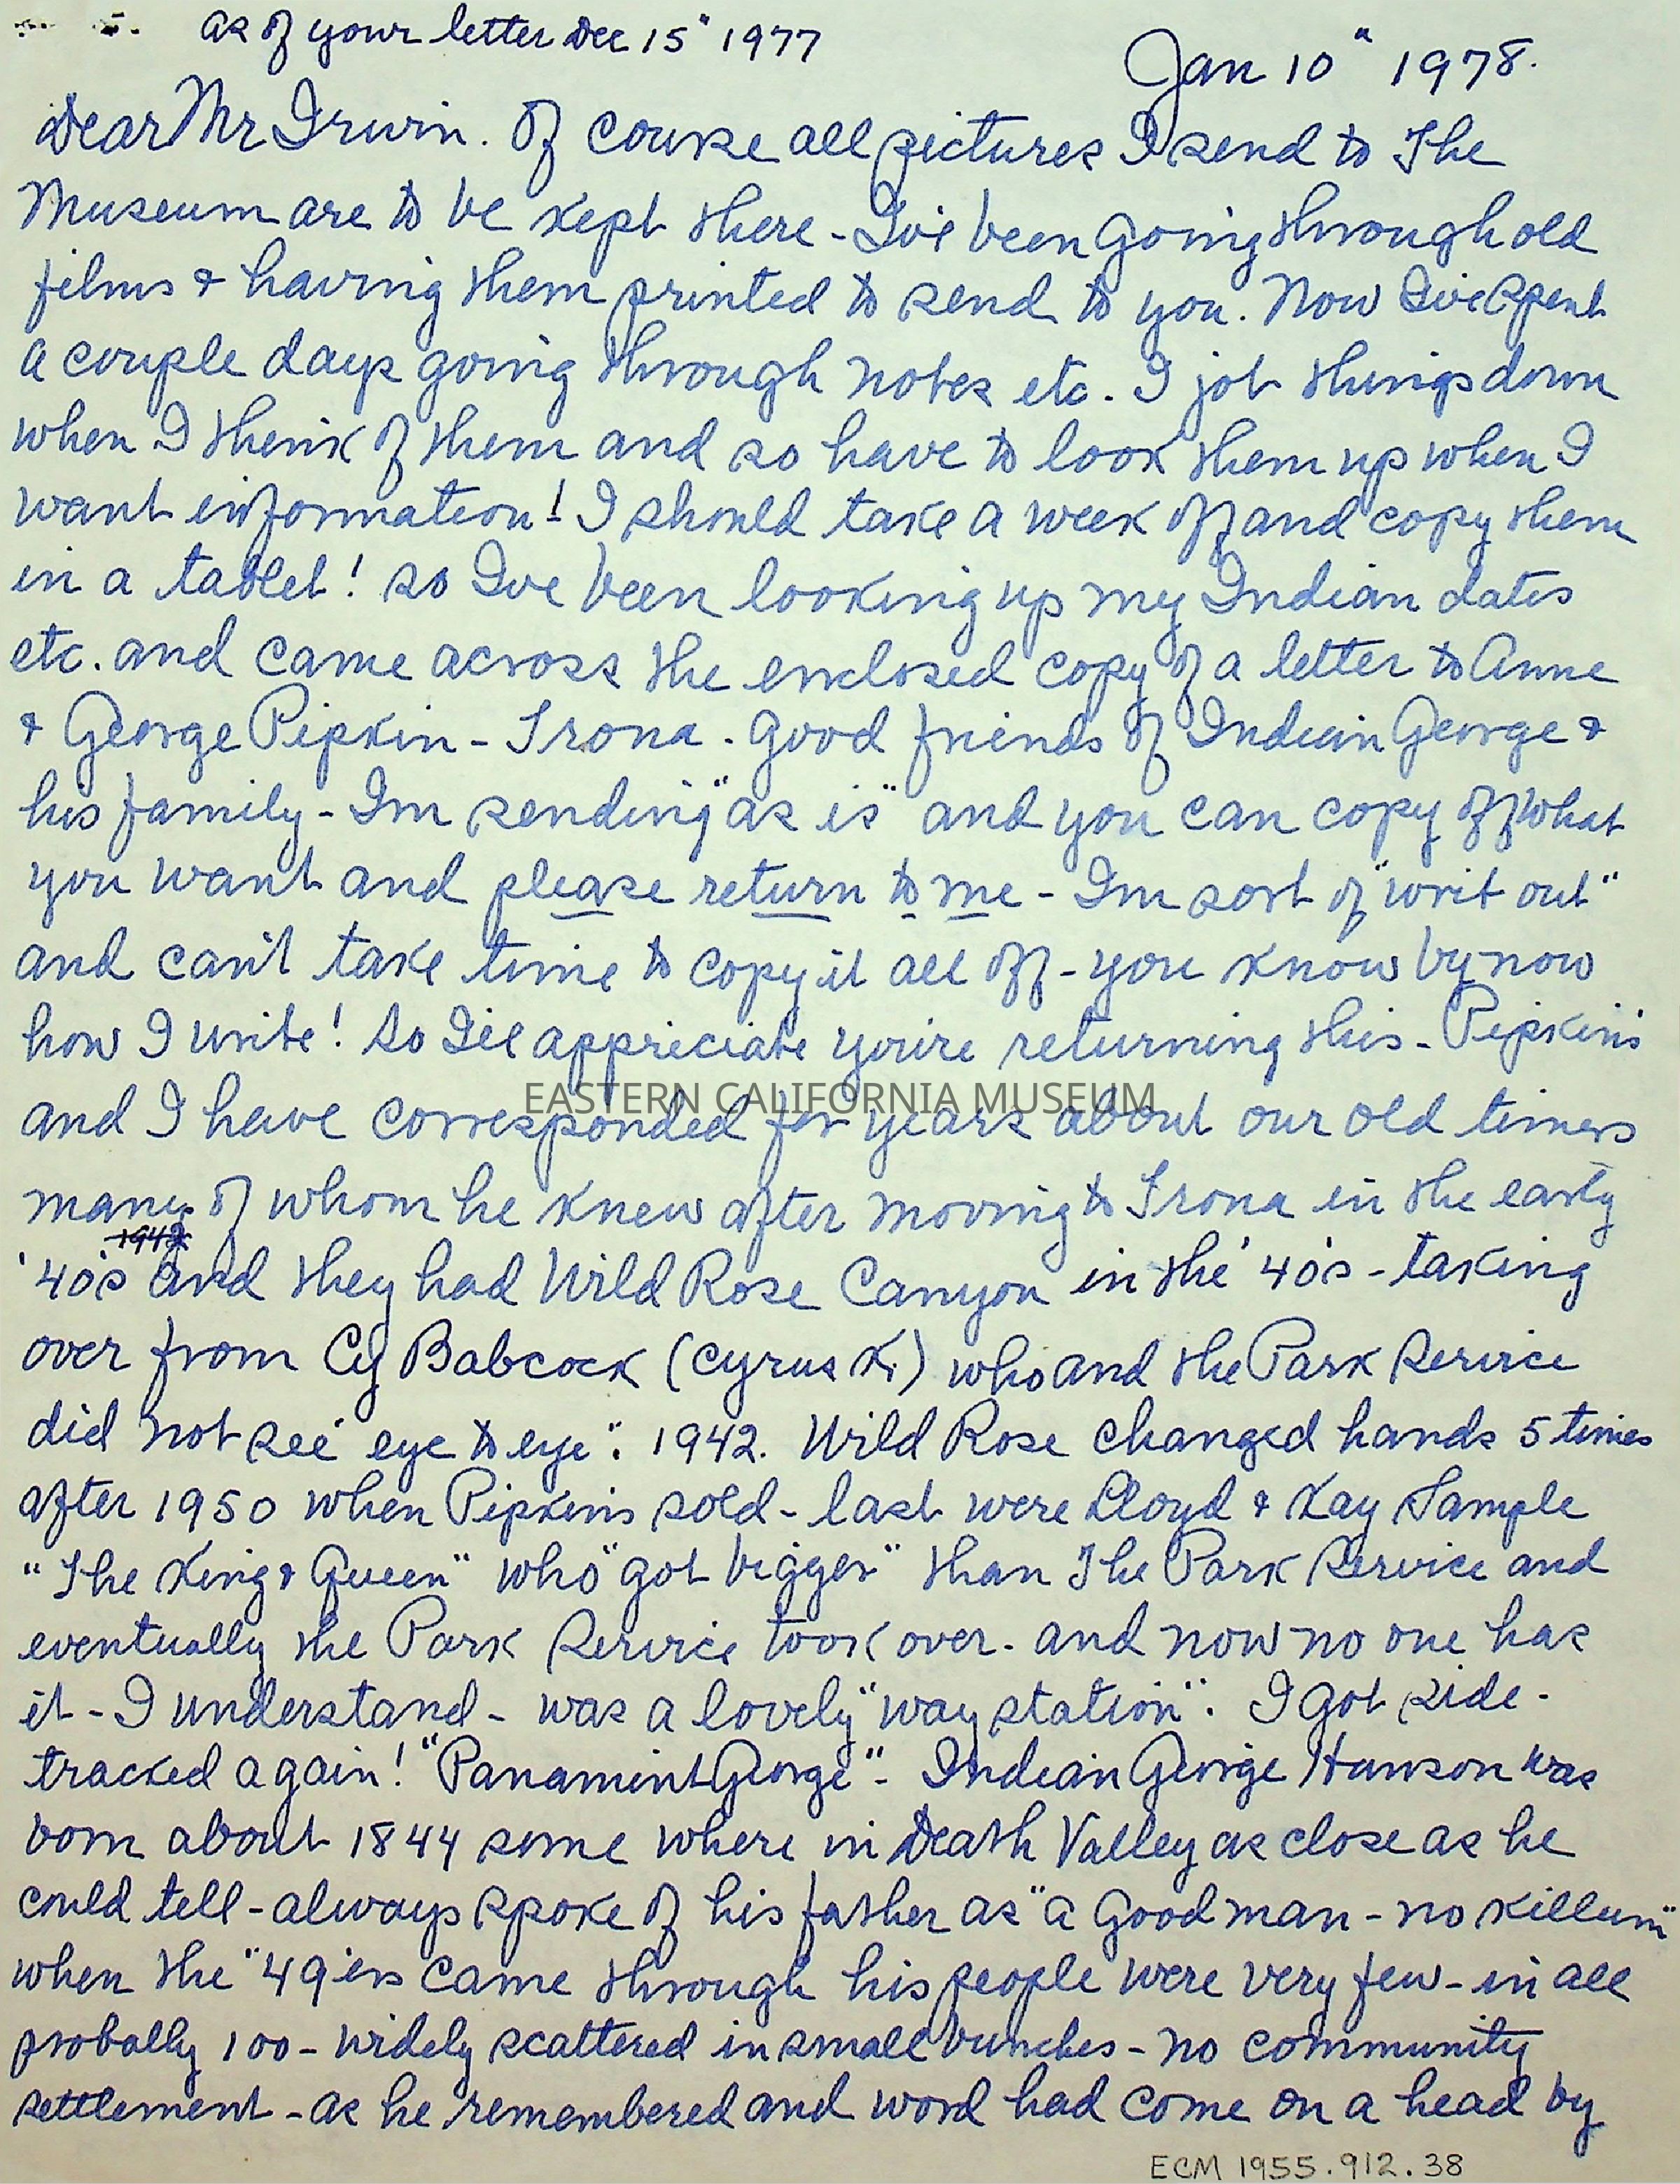 as of your letter Dec 15" 1977
Jan 10" 1978.
Dear Mr Irwin. Of course all pictures I send to The
Museum are to be kept there - I've been going through old
films & having them printed to send to you. Now I've spent
a couple days going through notes etc. I jot things down
when I think of them and so have to look them up when I
want information! I should take a week off and copy them
in a tablet! So I've been looking up my Indian dates
etc. and came across the enclosed copy of a letter to Anne
& George Pipkin - Trona. Good friends of Indian George &
his family - Im sending "as is" and you can copy off what
you want and please return to me - Im sort of "writ out"
and can't take time to copy it all off - you know by now
how I write! So I'll appreciate you're returning this - Pipkin's
EASTERN CALIFORNIA MUSEUM
and I have corresponded for years about our old timers
many of whom he knew after moving to Trona in the early
1942
'40's and they had Wild Rose Canyon in the '40's - taking
over from Cy Babcock (Cyrus K.) who and the Park Service
did not see "eye to eye". 1942. Wild Rose changed hands 5 times
after 1950 when Pipkins sold - last were Lloyd & Kay Sample
"The King & Queen" who "got bigger" than The Park Service and
eventually the Park Service took over - and now no one has
it - I understand - was a lovely "way station". I got side -
tracked again! "Panamint George" - Indian George Hanson was
born about 1844 some where in Death Valley as close as he
could tell - always spoke of his father as "a good man - no killum"
when the "49ers came through his people were very few - in all
probally 100 - widely scattered in small bunches - no community
settlement - as he remembered and word had come on a head by
ECM 1955.912.38